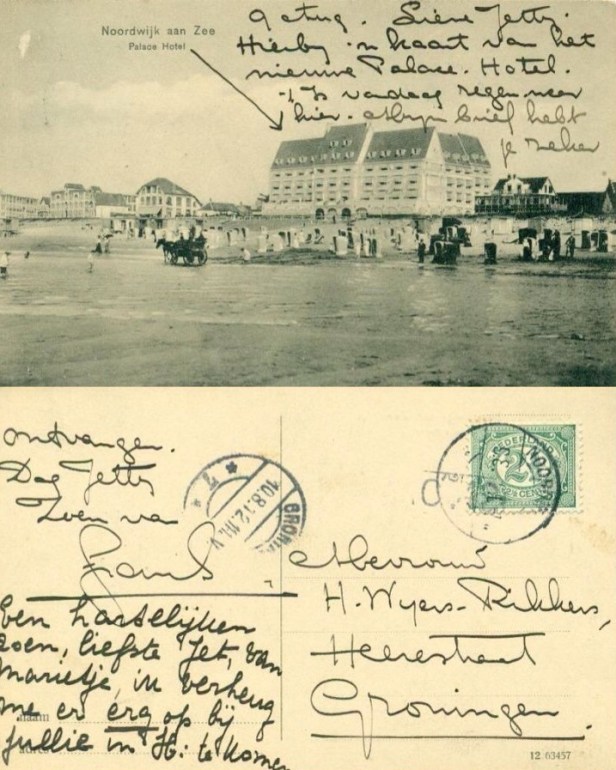 Noordwijk aan Zee
Palace Hotel
9 Aug. Lieve Jetty.
Hierby 'n kaart van het
nieuwe Palace-Hotel.
't Is vandaag regen weer
hier. Myn brief hebt
je zeker
ontvangen.
Dag Jetty
Zoen van
Frans
Een hartelijken
zoen, liefste Jet, van
Marietje, ik verheug
me er erg op bij
jullie in H. te komen
10.8.12.
GRONI
NEDERLAND
2½ CENT
NOORD
Mevrouw
H. Wyers-Rikkers,
Heerestraat
Groningen.
naam
adres
12 63457